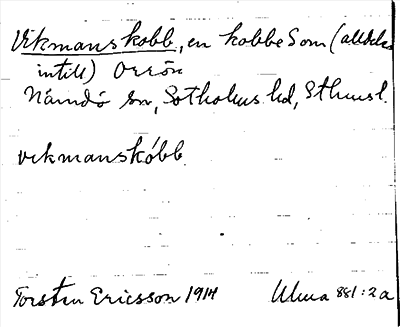 Vikmanskobb, en kobbe Som (alldeles
intill) Orrön
Nämdö sn, Sotholms hd, Sthmsl.
vikmanskóbb
Torsten Ericsson 1914 Ulma 881:2a